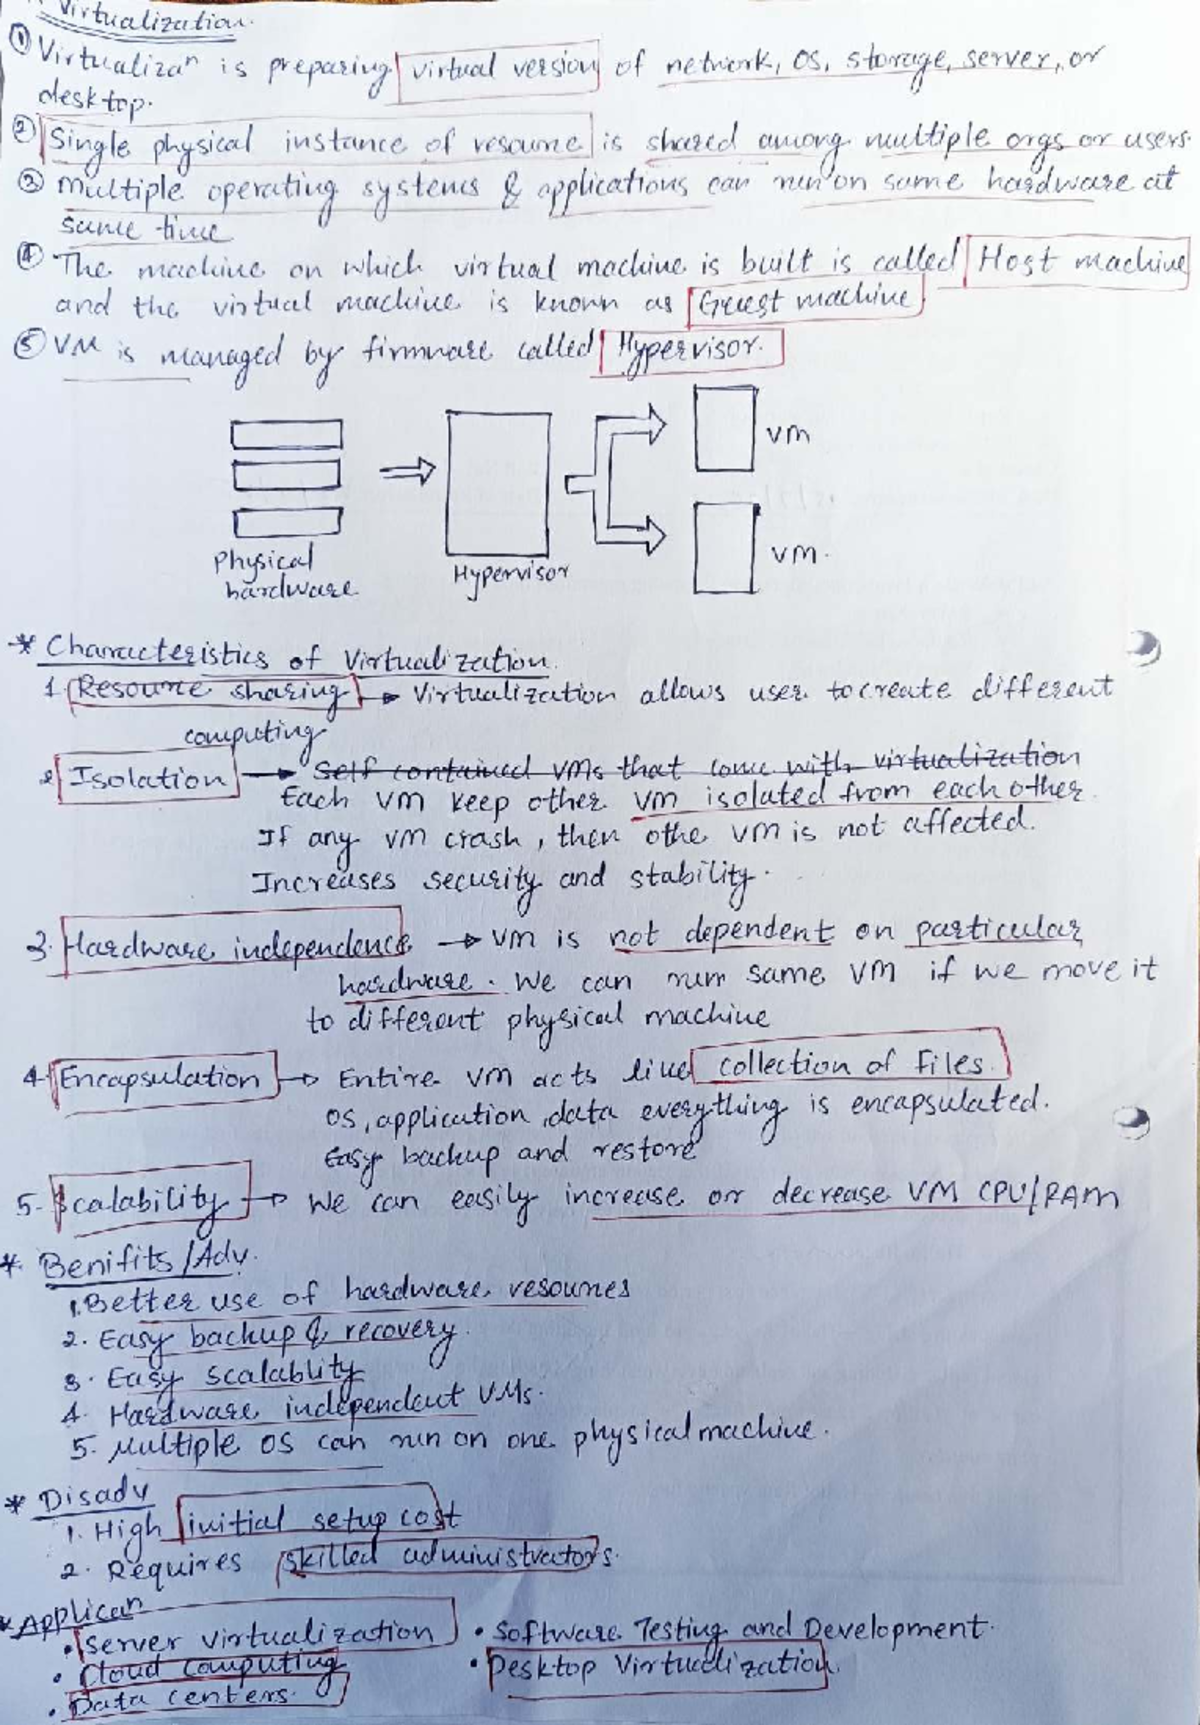 Virtualization.
① Virtualizaⁿ is preparing virtual version of network, OS, storage, server, or
desktop.
② Single physical instance of resource is shared among multiple orgs or users.
③ Multiple operating systems & applications can run on same hardware at
same time
④ The machine on which virtual machine is built is called Host machine
and the virtual machine is known as Guest machine
⑤ VM is managed by firmware called Hypervisor.
VM
Physical
hardware
Hypervisor
VM.
* Characteristics of Virtualization.
1. Resource sharing → Virtualization allows user to create different
computing
2. Isolation → Self contained VMs that come with virtualization
Each VM keep other VM isolated from each other.
If any VM crash, then othe VM is not affected.
Increases security and stability.
3. Hardware independence → VM is not dependent on particular
hardware. We can run same VM if we move it
to different physical machine
4. Encapsulation → Entire VM acts like collection of files.
OS, application, data everything is encapsulated.
Easy backup and restore
5. Scalability → We can easily increase or decrease VM CPU/RAM
* Benifits/Adv.
1. Better use of hardware resources
2. Easy backup & recovery.
3. Easy Scalablity
4. Hardware independent VMs.
5. Multiple OS can run on one physical machine.
* Disadv
1. High initial setup cost
2. Requires skilled administrators.
* Applicaⁿ
• Server virtualization • Software Testing and Development.
• Cloud Computing • Desktop Virtualization.
• Data centers.